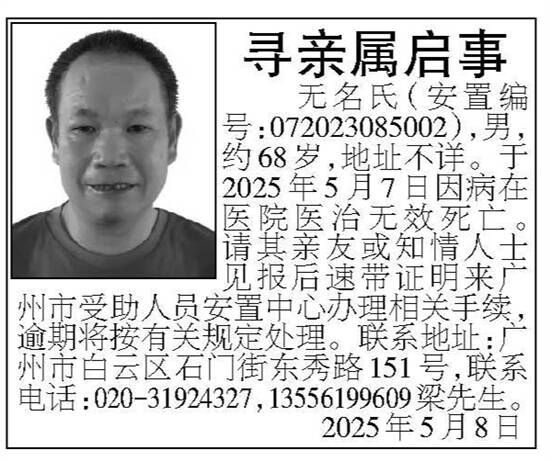 寻亲属启事
无名氏(安置编
号:072023085002),男,
约68岁,地址不详。于
2025年5月7日因病在
医院医治无效死亡。
请其亲友或知情人士
见报后速带证明来广
州市受助人员安置中心办理相关手续,
逾期将按有关规定处理。联系地址:广
州市白云区石门街东秀路151号,联系
电话:020-31924327,13556199609梁先生。
2025年5月8日